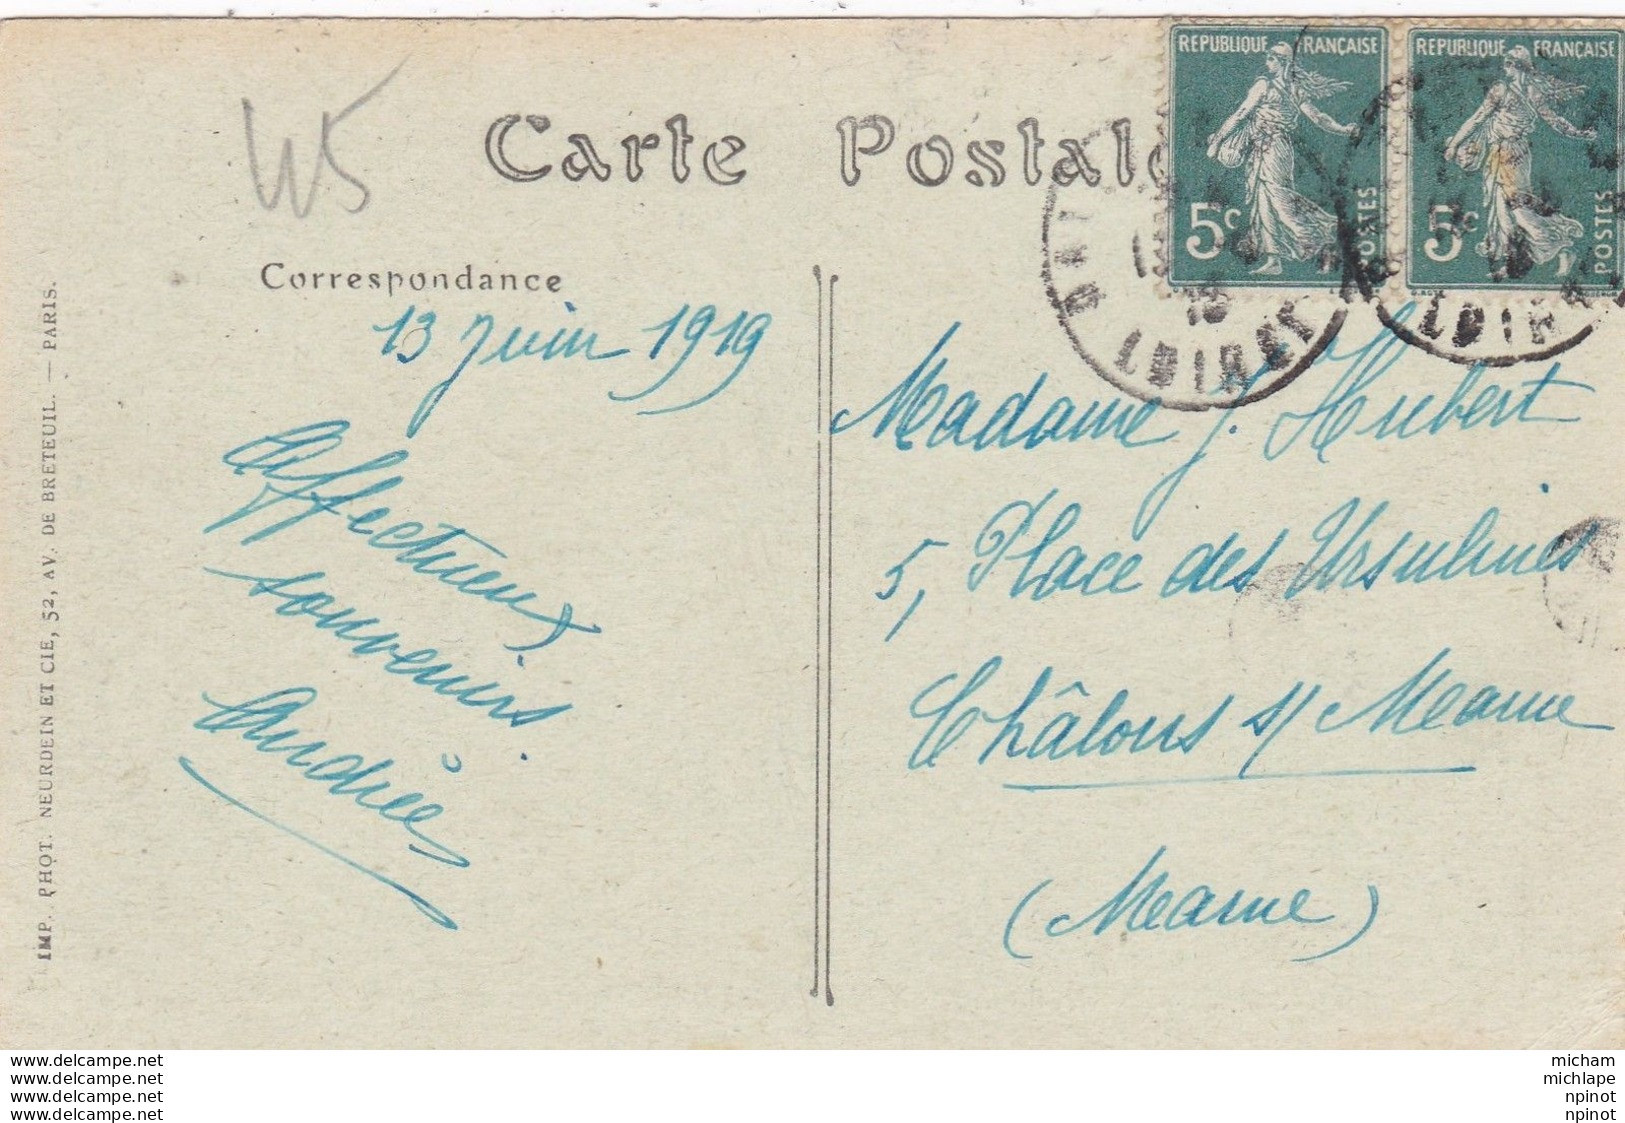 REPUBLIQUE FRANÇAISE
5c
POSTES
REPUBLIQUE FRANÇAISE
5c
POSTES
LOIRET
LOIRET
W5
Carte Postale
Correspondance
13 Juin 1919
Affectueux
souvenirs.
Andrée
Madame J. Hubert
5, Place des Ursulines
Châlons s/ Marne
(Marne)
IMP. PHOT. NEURDEIN ET CIE, 52, AV. DE BRETEUIL. — PARIS.
www.delcampe.net
www.delcampe.net
www.delcampe.net
www.delcampe.net
micham
michlape
npinot
npinot